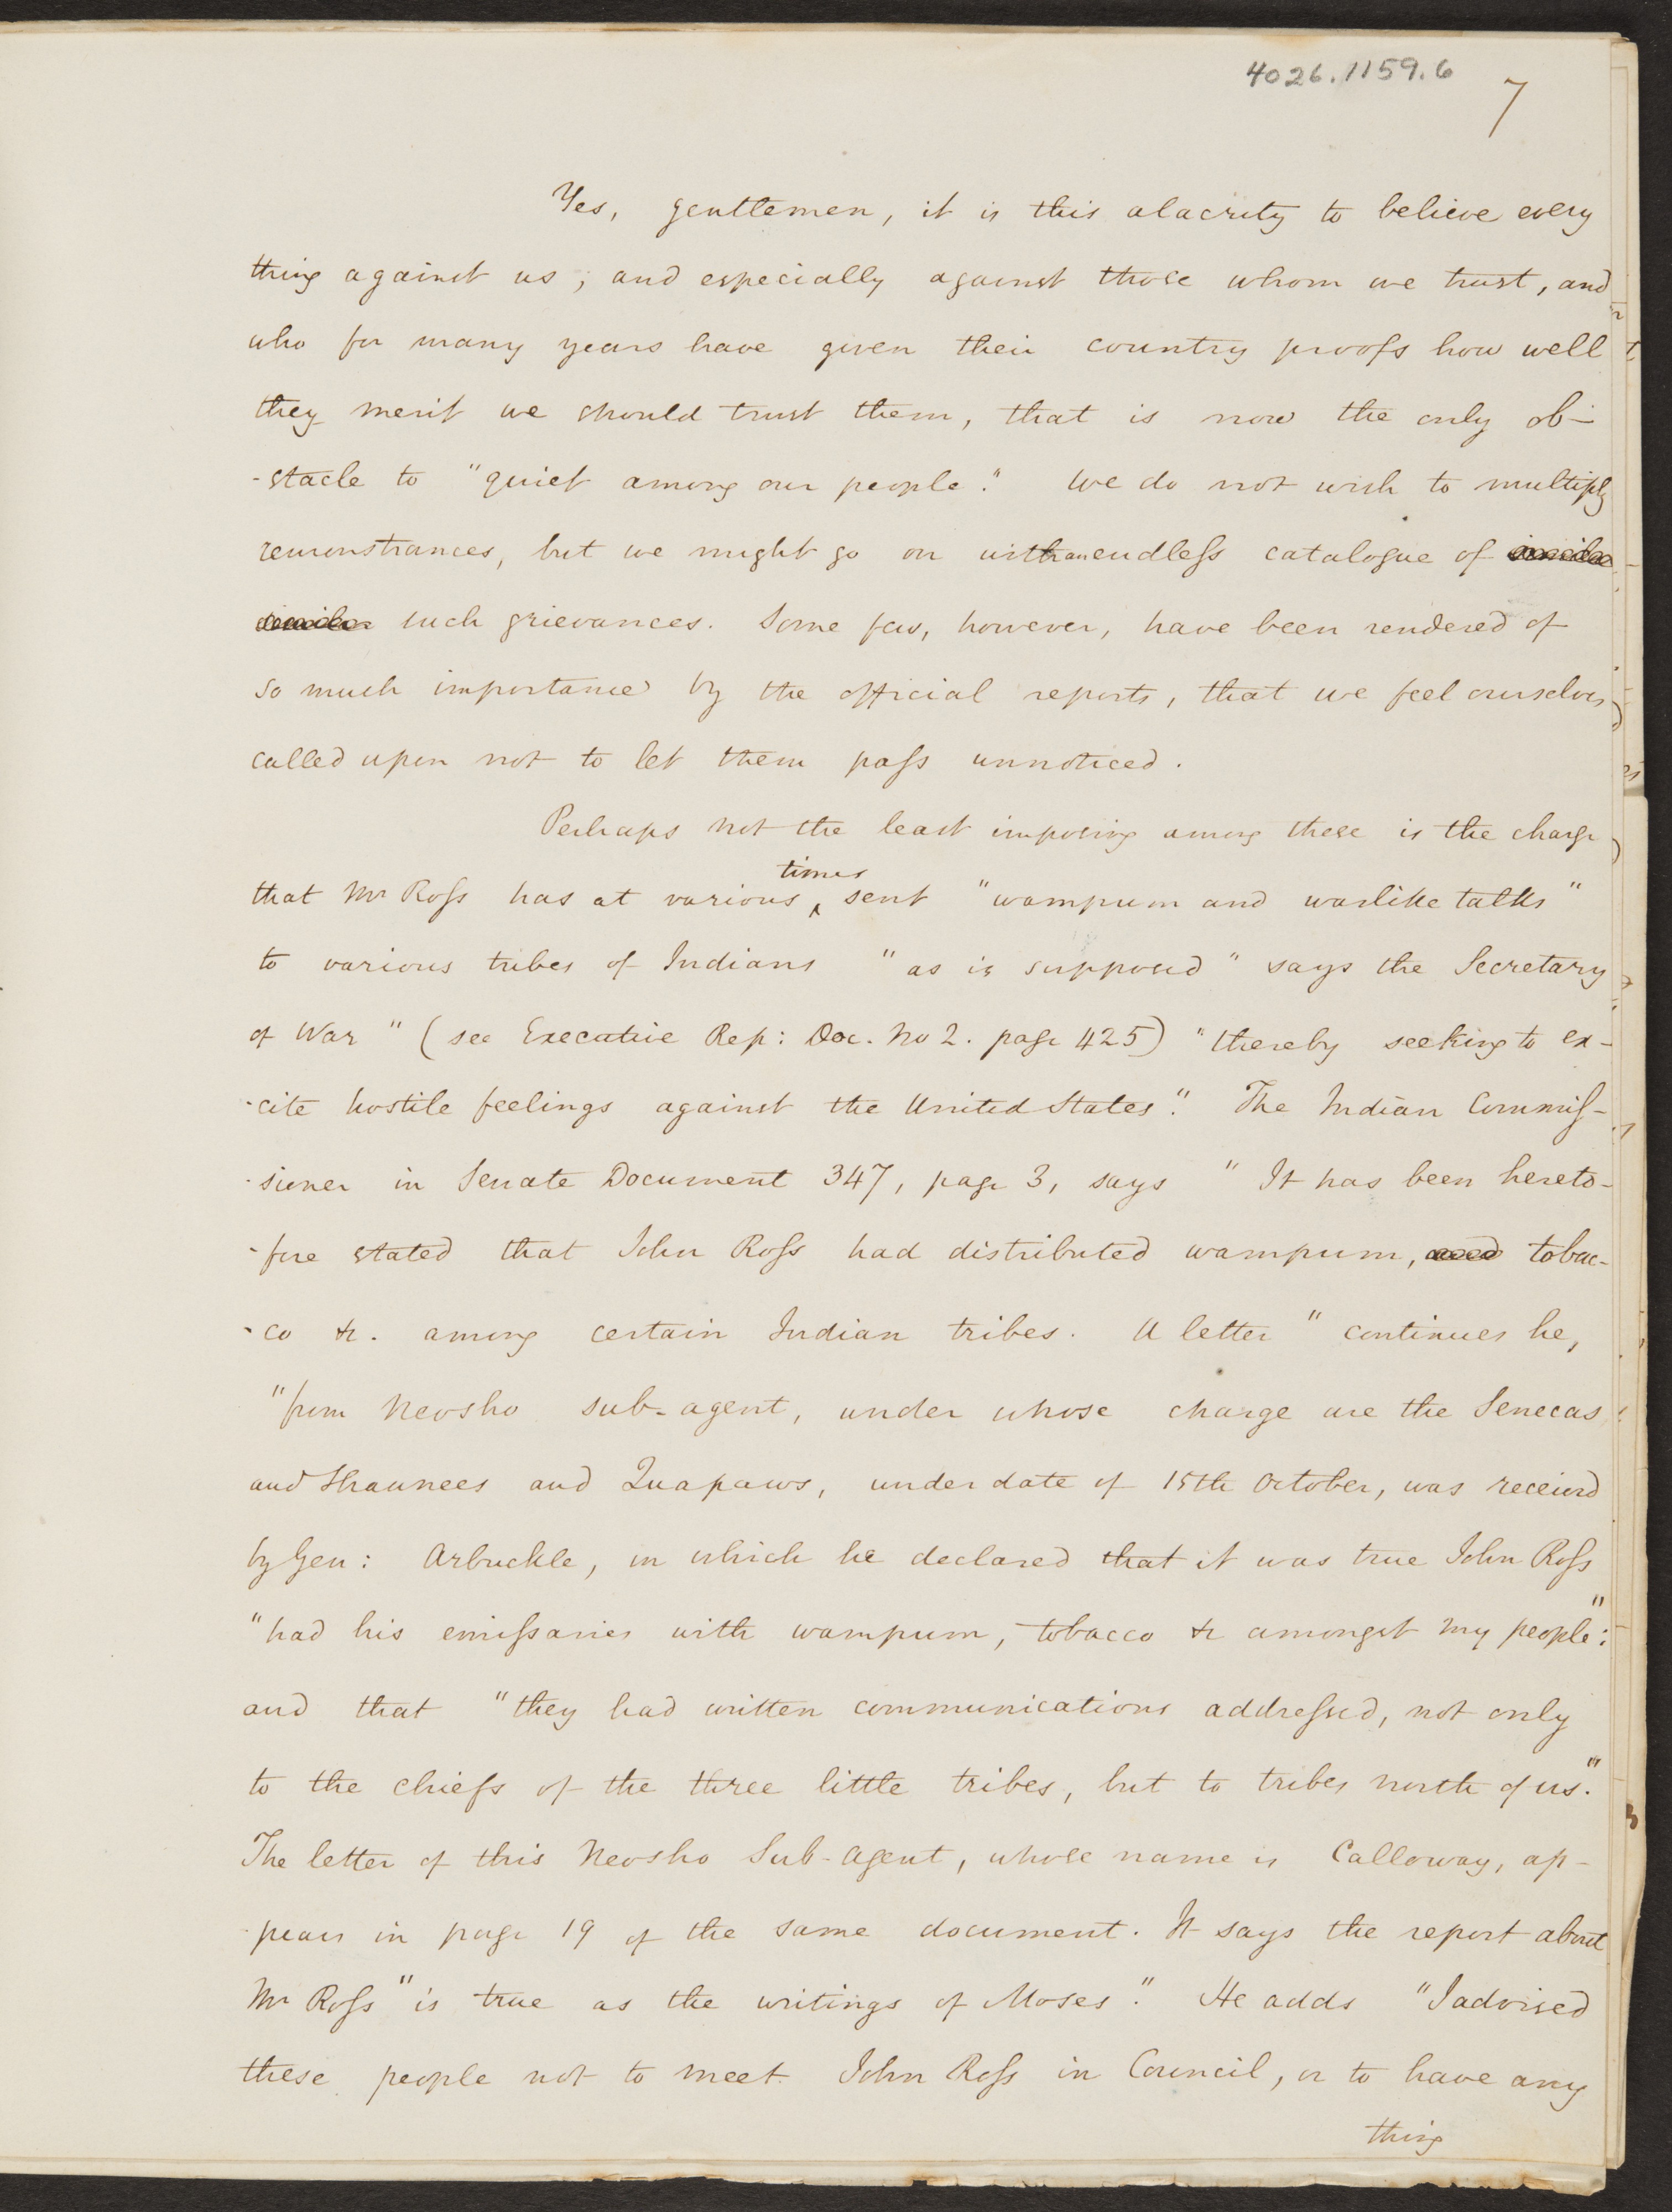 4026.1159.6
7
Yes, gentlemen, it is this alacrity to believe every
thing against us, and especially against those whom we trust, and
who for many years have given their country proofs how well
they merit we should trust them, that is now the only ob-
-stacle to "quiet among our people." We do not wish to multiply
remonstrances, but we might go on with an endless catalogue of
such grievances. Some few, however, have been rendered of
so much importance by the official reports, that we feel ourselves
called upon not to let them pass unnoticed.
Perhaps not the least imposing among these is the charge
that Mr Ross has at various times sent "wampum and warlike talks"
to various tribes of Indians "as is supposed" says the Secretary
of War" (see Executive Rep: Doc. No 2. page 425) "thereby seeking to ex-
-cite hostile feelings against the United States." The Indian Commis-
-sioner in Senate Document 347, page 3, says "It has been hereto-
-fore stated that John Ross had distributed wampum, and tobac-
-co &c. among certain Indian tribes. A letter" continues he,
"from Neosho sub-agent, under whose charge are the Senecas
and Shaunees and Quapaws, under date of 15th October, was received
by Gen: Arbuckle, in which he declared that it was true John Ross
"had his emissaries with wampum, tobacco &c amongst my people":
and that "they had written communications addressed, not only
to the chiefs of the three little tribes, but to tribes north of us."'
The letter of this Neosho Sub-Agent, whose name is Calloway, ap-
-pears in page 19 of the same document. It says the report about
Mr Ross "is true as the writings of Moses." He adds "I advised
these people not to meet John Ross in Council, or to have any
thing